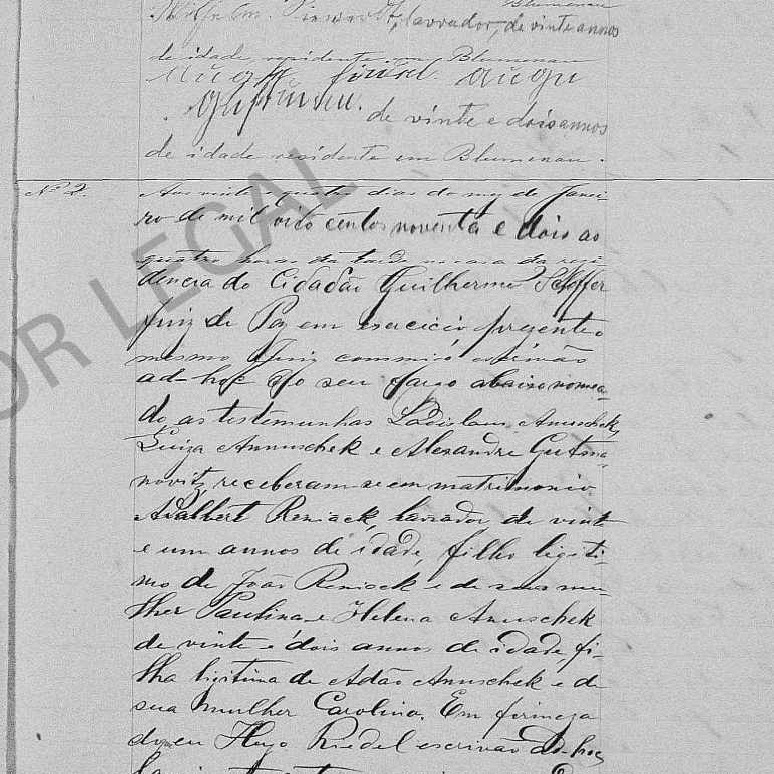 Blumenau
lavrador, de vinte annos
de idade, residente em Blumenau
de vinte e dois annos
de idade residente em Blumenau.
Nº 2. Aos vinte e quatro dias do mez de Janei-
ro de mil oito centos noventa e dois ao
quatro horas da tarde na casa da resi
dencia do Cidadão Guilherme Scheffer
Juiz de Paz em exercicio, prezente o
mesmo Juiz commigo escrivão
ad-hoc do seu cargo abaixo nomea-
do, as testemunhas Ladislaus Anuschek,
Luiza Annuschek e Alexandre Gutma-
novitz, receberam se em matrimonio
Adalbert Reniack, lavrador de vinte
e um annos de idade, filho legiti-
mo de João Reniack e de sua mu-
lher Paulina e Helena Anuschek
de vinte e dois annos de idade, fi-
lha ligitima de Adão Anuschek e de
sua mulher Carolina. Em firmeza
do que eu Hugo Riedel escrivão ad-hoc
OR LEGAL